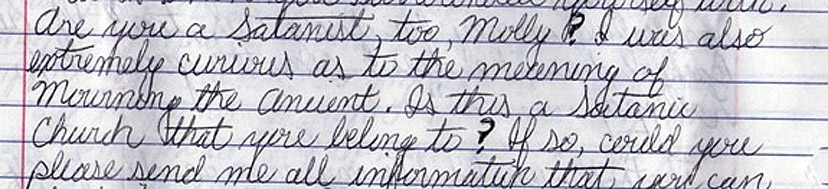 yourself with.
Are you a Satanist, too, Molly? I was also
extremely curious as to the meaning of
Mourning the Ancient. Is this a Satanic
Church that you belong to? If so, could you
please send me all information that you can,